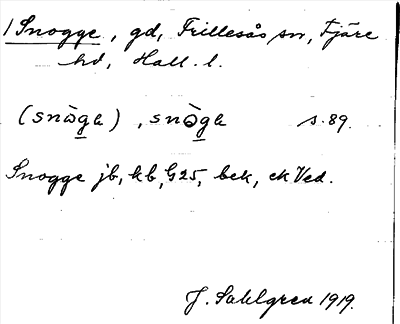 /Snogge, gd, Frillesås sn, Fjäre
hd, Hall. l.
(snòga), snòga s. 89.
Snogge jb, kb, G25, bek, ek Ved.
J. Sahlgren 1919.